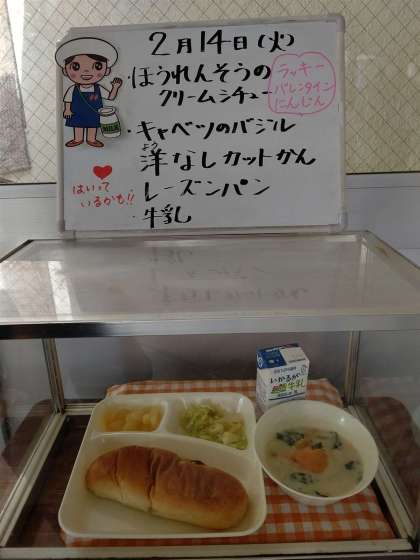 2月14日(火)
・ほうれんそうの
クリームシチュー
ラッキー
バレンタイン
にんじん
・キャベツのバジル
よう
洋なしカットかん
・レーズンパン
・牛乳
はいって
いるかも!!
MILK
いかるが
牛乳